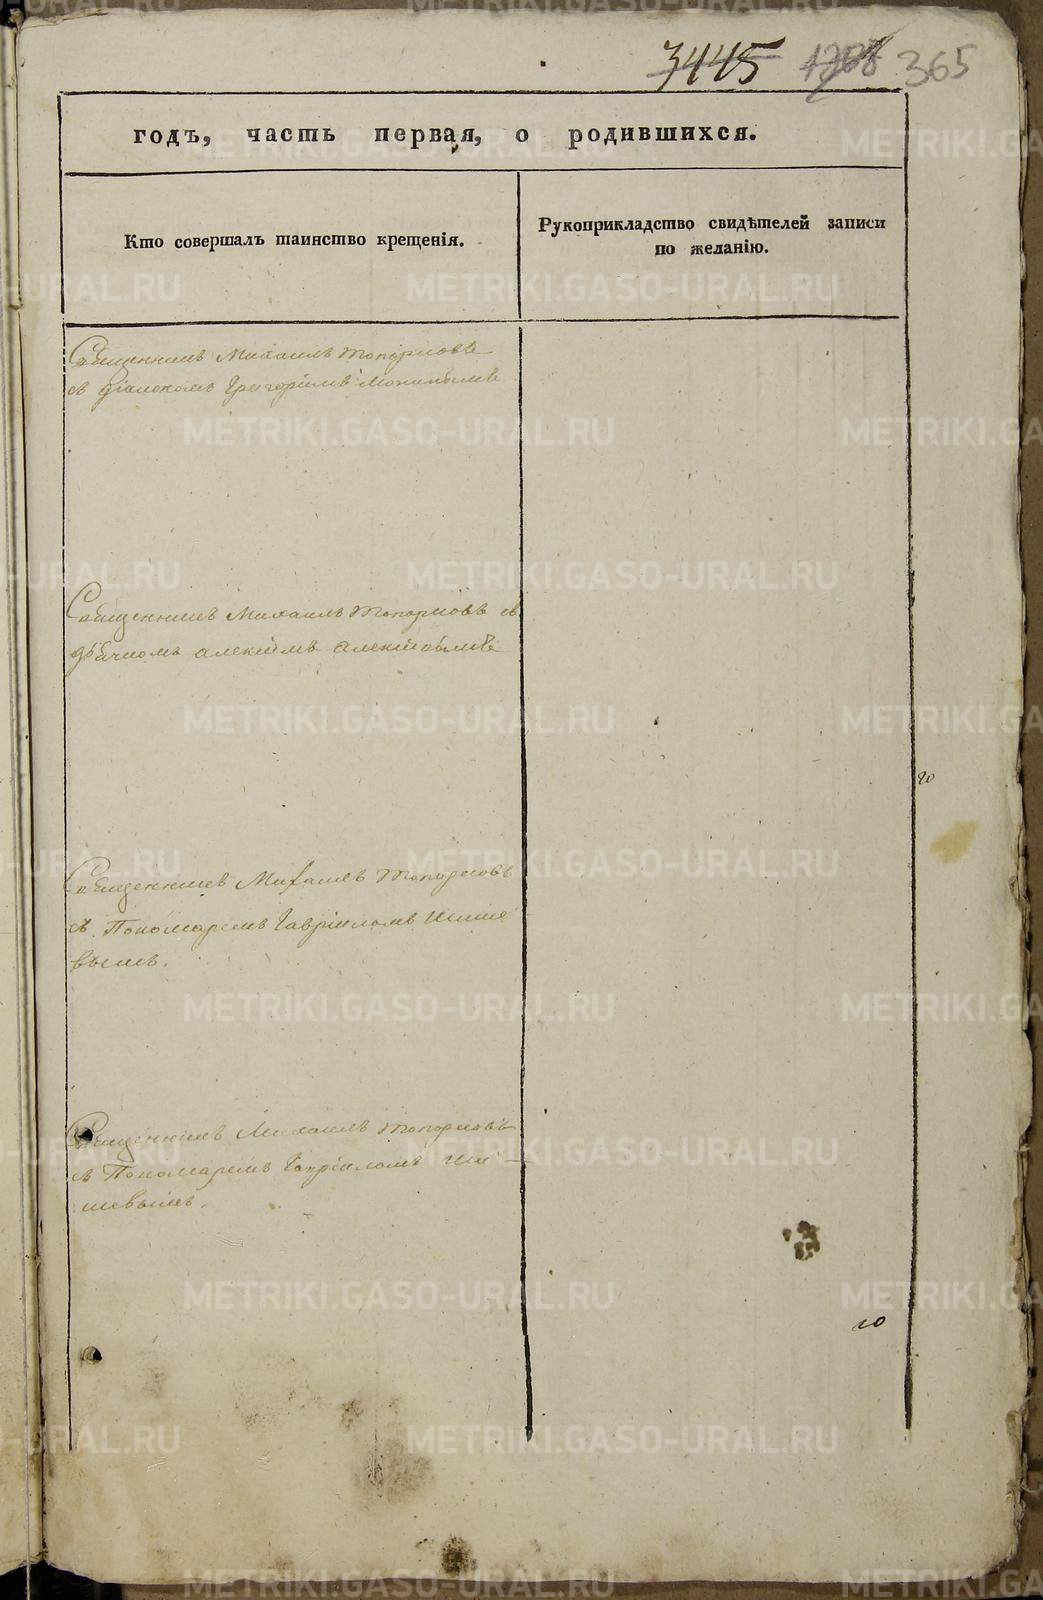 3445 1208 365
годъ, часть первая, о родившихся.
Кто совершалъ таинство крещенія.
Рукоприкладство свидѣтелей записи
по желанію.
Священникъ Михаилъ Топорковъ
съ діакономъ Григоріемъ
Священникъ Михаилъ Топорковъ съ
дьячкомъ Алексіемъ
Священникъ Михаилъ Топорковъ
съ Пономаремъ Гавріиломъ Шише
вымъ.
Священникъ Михаилъ Топорковъ
съ Пономаремъ Гавріиломъ Ши-
шевымъ.
го
го
METRIKI.GASO-URAL.RU